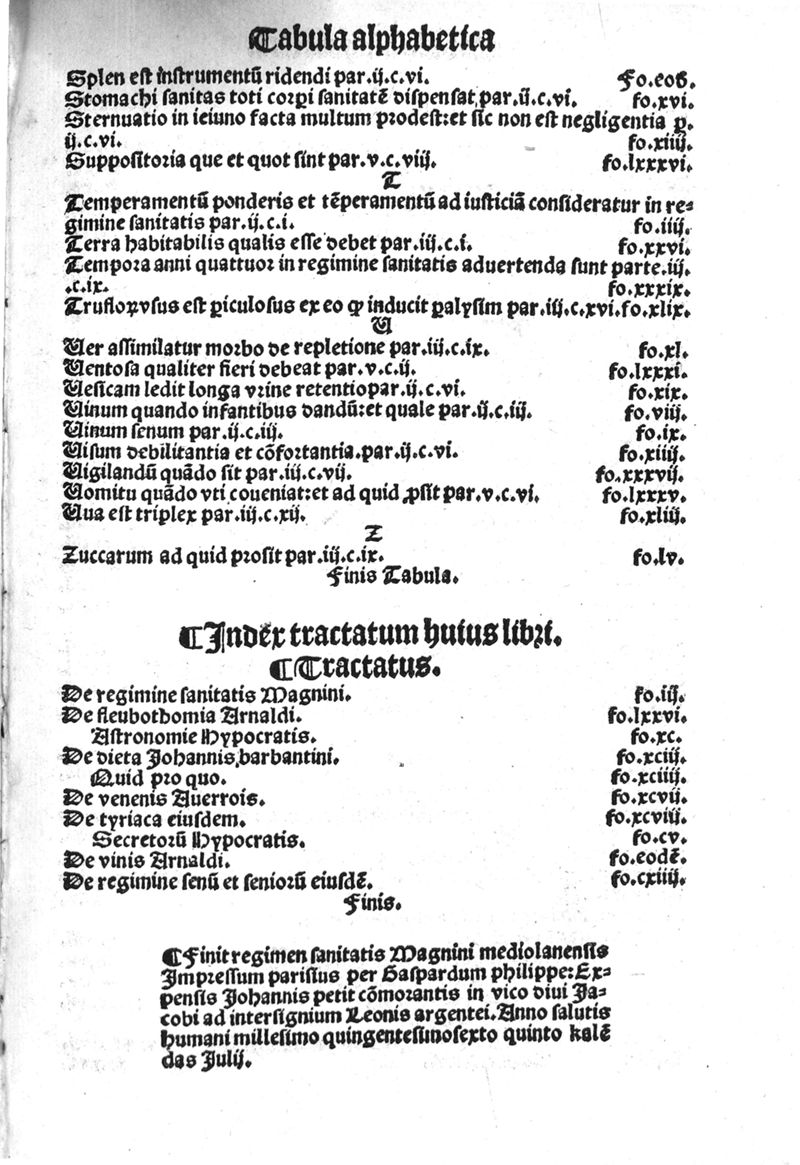 ¶Tabula alphabetica
Splen est instrumentū ridendi par.ij.c.vi. Fo.eos.
Stomachi sanitas toti corpi sanitatē dispensat par.ij.c.vi. fo.xvi.
Sternuatio in ieiuno facta multum prodest:et sic non est negligentia p.
ij.c.vi. fo.xiiij.
Suppositoria que et quot sint par.v.c.viij. fo.lxxxvi.
T
Temperamentū ponderis et tēperamentū ad iusticiā consideratur in re=
gimine sanitatis par.ij.c.i. fo.iiij.
Terra habitabilis qualis esse debet par.iij.c.i. fo.xxvi.
Tempora anni quattuor in regimine sanitatis aduertenda sunt parte.iij.
.c.ix. fo.xxxix.
Trufloꝝvsus est ꝑiculosus ex eo ꝙ inducit ꝑalysim par.iij.c.xvi.fo.xlix.
U
Uer assimilatur morbo de repletione par.iij.c.ix. fo.xl.
Uentosa qualiter fieri debeat par.v.c.ij. fo.lxxxi.
Uesicam ledit longa vrine retentiopar.ij.c.vi. fo.xix.
Uinum quando infantibus dandū:et quale par.ij.c.iij. fo.viij.
Uinum senum par.ij.c.iij. fo.ix.
Uisum debilitantia et cōfortantia.par.ij.c.vi. fo.xiiij.
Uigilandū quādo sit par.iij.c.vij. fo.xxxvij.
Uomitu quādo vti coueniat:et ad quid ꝓsit par.v.c.vi. fo.lxxxv.
Uua est triplex par.iij.c.xij. fo.xliij.
Z
Zuccarum ad quid prosit par.iij.c.ix. fo.lv.
Finis Tabula.
¶Indēx tractatum huius libri.
¶Tractatus.
De regimine sanitatis Magnini. fo.iij.
De fleubothomia Arnaldi. fo.lxxvi.
Astronomie Hypocratis. fo.xc.
De dieta Johannis barbantini. fo.xciij.
Quid pro quo. fo.xciiij.
De venenis Auerrois. fo.xcvij.
De tyriaca eiusdem. fo.xcviij.
Secretorū Hypocratis. fo.cv.
De vinis Arnaldi. fo.eodē.
De regimine senū et seniorū eiusdē. fo.cxiiij.
Finis.
¶Finit regimen sanitatis Magnini mediolanensis
Impressum parisius per Gaspardum philippe:Ex=
pensis Johannis petit cōmorantis in vico diui Ja=
cobi ad intersignium Leonis argentei.Anno salutis
humani millesimo quingentesimosexto quinto kalē
das Julij.